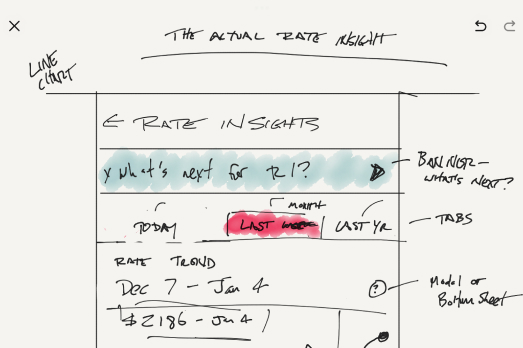 THE ACTUAL RATE INSIGHT
LINE
CHART
← RATE INSIGHTS
x What's next for R1?
BANNER -
WHAT'S NEXT?
MONTH
TODAY
LAST
LAST YR
TABS
RATE TREND
Dec 7 - Jan 4
?
Modal or
Bottom Sheet
$2186 - Jan 4